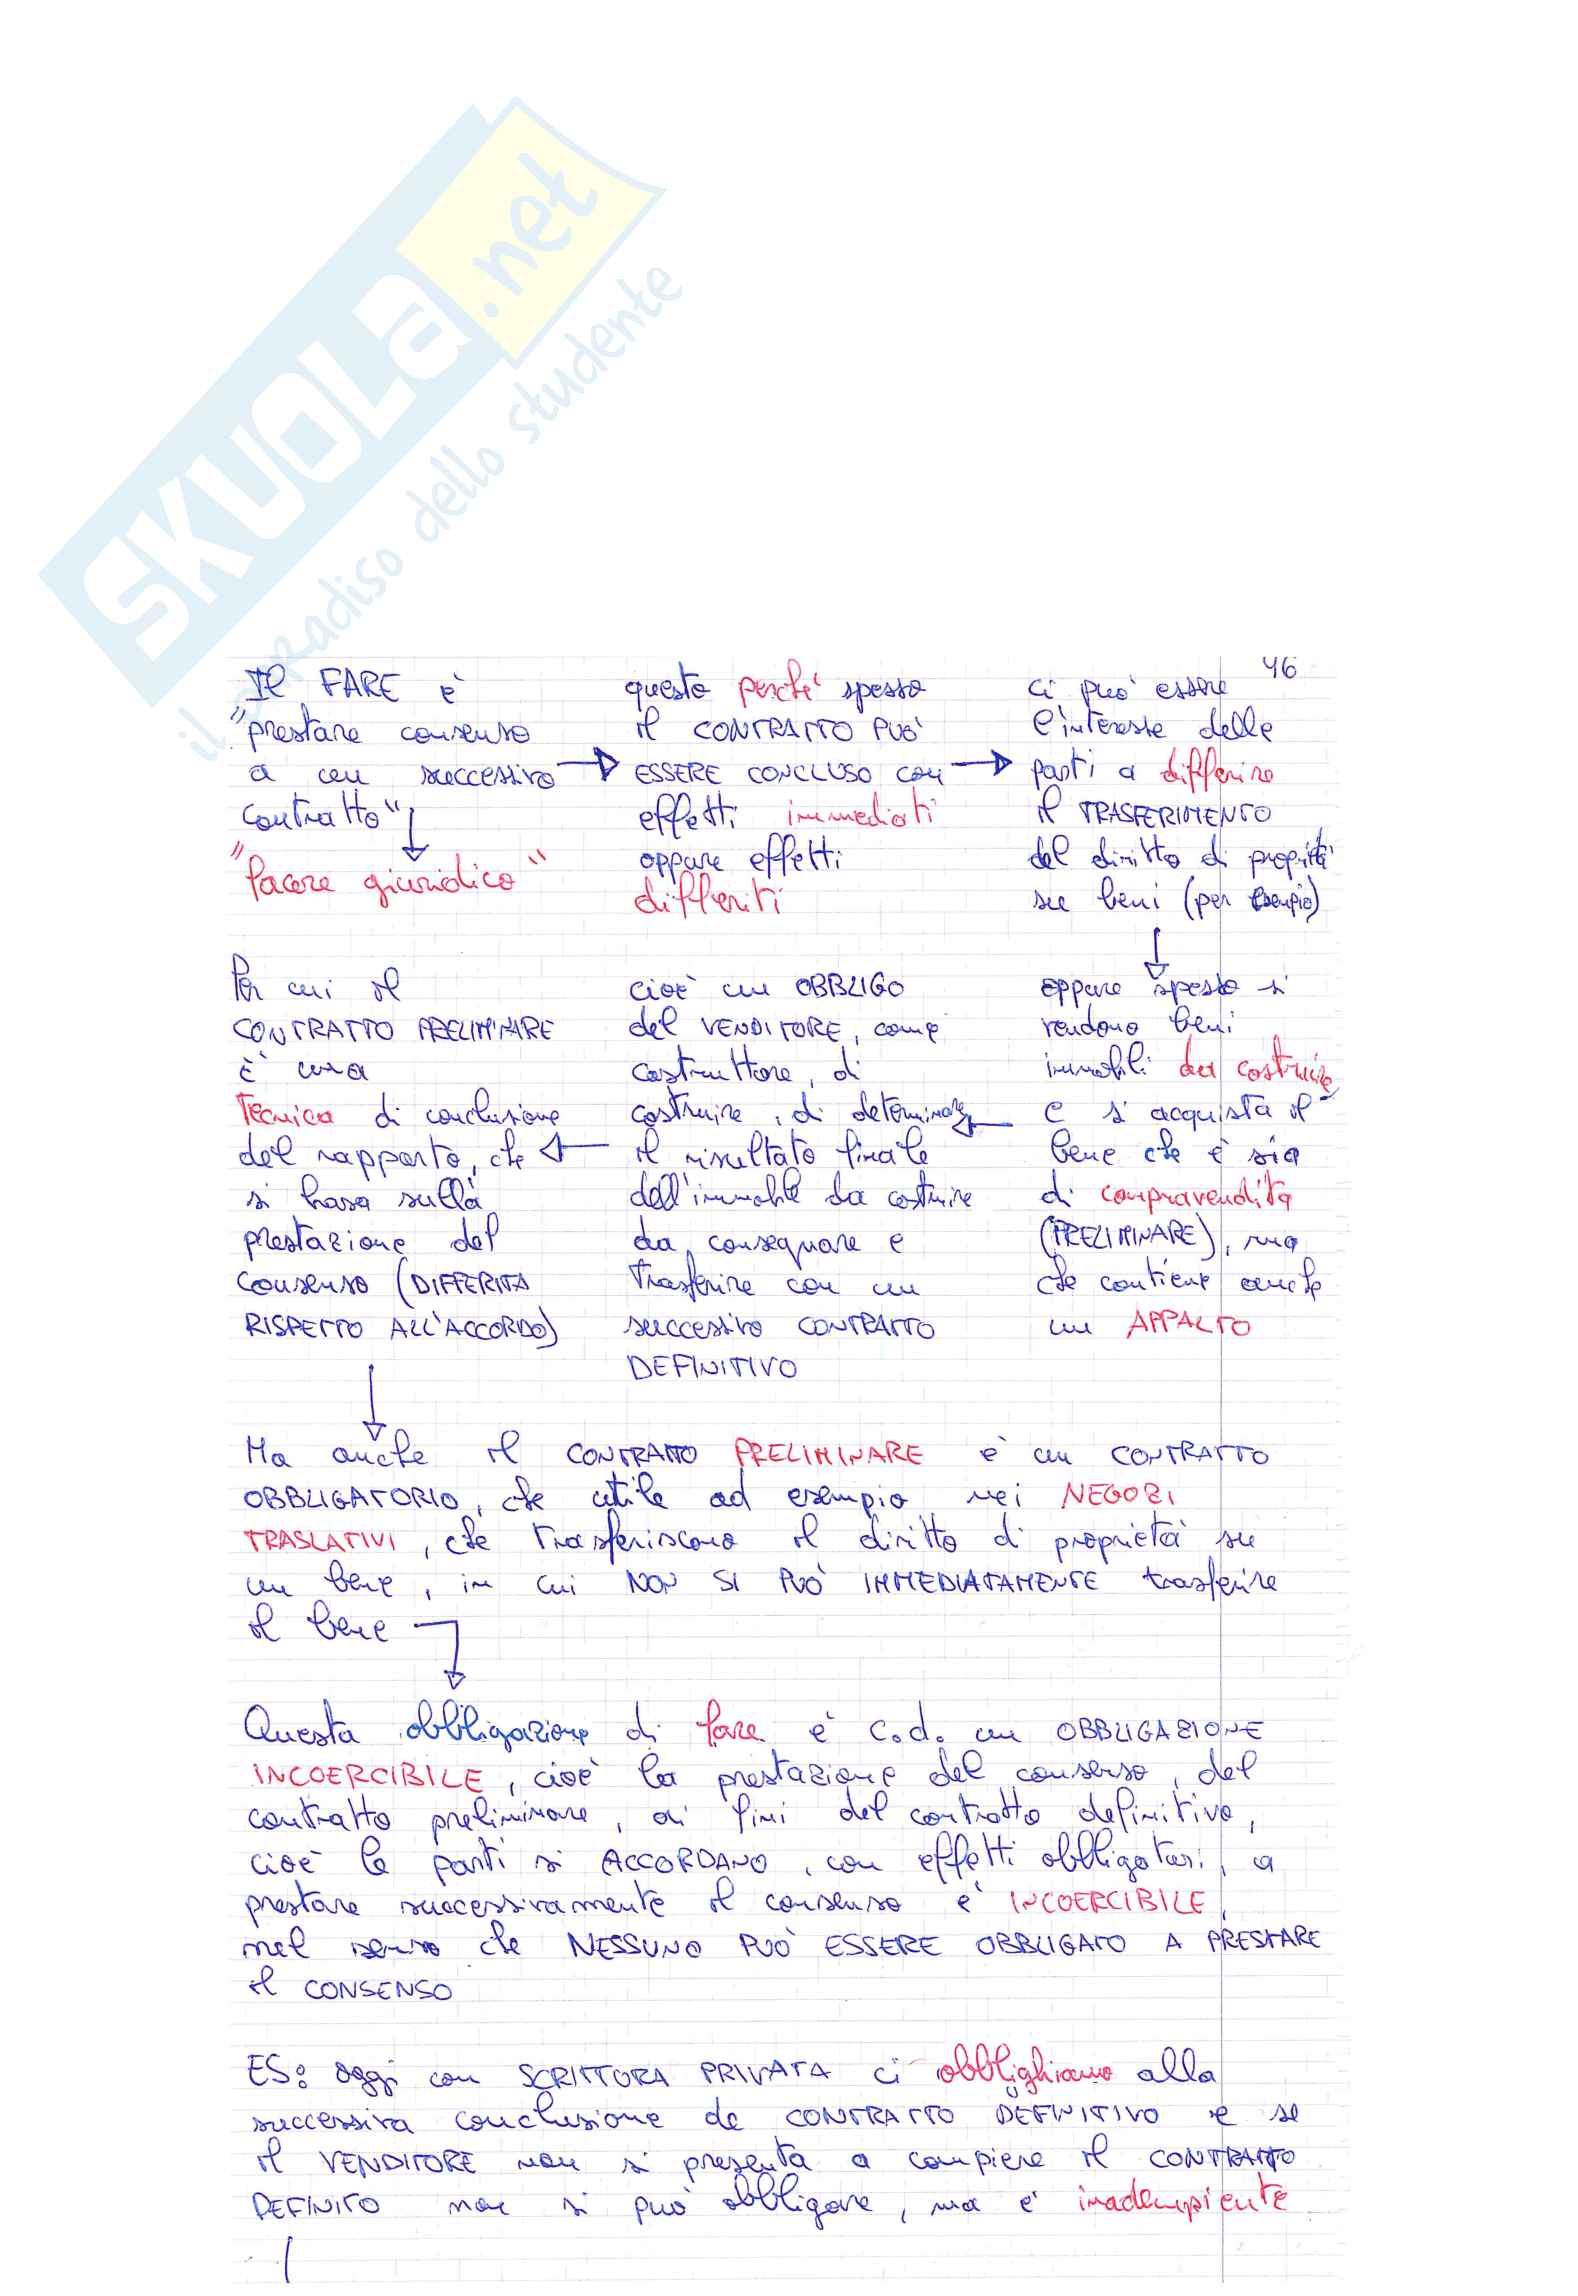 SKUOLa.net
il paradiso dello studente
46
Il FARE è
"prestare consenso
a un successivo
contratto"
"facere giuridico"
questo perché spesso
il CONTRATTO PUÒ
ESSERE CONCLUSO con
effetti immediati
oppure effetti
differiti
ci può essere
l'interesse delle
parti a differire
il TRASFERIMENTO
del diritto di proprietà
su beni (per esempio)
oppure spesso si
vendono beni
immobili da costruire
e si acquista il
bene che è sia
di compravendita
(PRELIMINARE), ma
che contiene anche
un APPALTO
cioè un OBBLIGO
del VENDITORE, come
costruttore, di
costruire, di determinare
il risultato finale
dell'immobile da costruire
da consegnare e
trasferire con un
successivo CONTRATTO
DEFINITIVO
Per cui il
CONTRATTO PRELIMINARE
È una
tecnica di conclusione
del rapporto, che
si basa sulla
prestazione del
consenso (DIFFERITA
RISPETTO ALL'ACCORDO)
Ma anche il CONTRATTO PRELIMINARE è un CONTRATTO
OBBLIGATORIO, che utile ad esempio nei NEGOZI
TRASLATIVI, che trasferiscono il diritto di proprietà su
un bene, in cui NON SI PUÒ IMMEDIATAMENTE trasferire
il bene
Questa obbligazione di fare è c.d. un OBBLIGAZIONE
INCOERCIBILE, cioè la prestazione del consenso, del
contratto preliminare, ai fini del contratto definitivo,
cioè le parti si ACCORDANO, con effetti obbligatori, a
prestare successivamente il consenso è INCOERCIBILE,
nel senso che NESSUNO PUÒ ESSERE OBBLIGATO A PRESTARE
il CONSENSO
ES: oggi con SCRITTURA PRIVATA ci obblighiamo alla
successiva conclusione de CONTRATTO DEFINITIVO e se
il VENDITORE non si presenta a compiere il CONTRATTO
DEFINITO non si può obbligare, ma è inadempiente